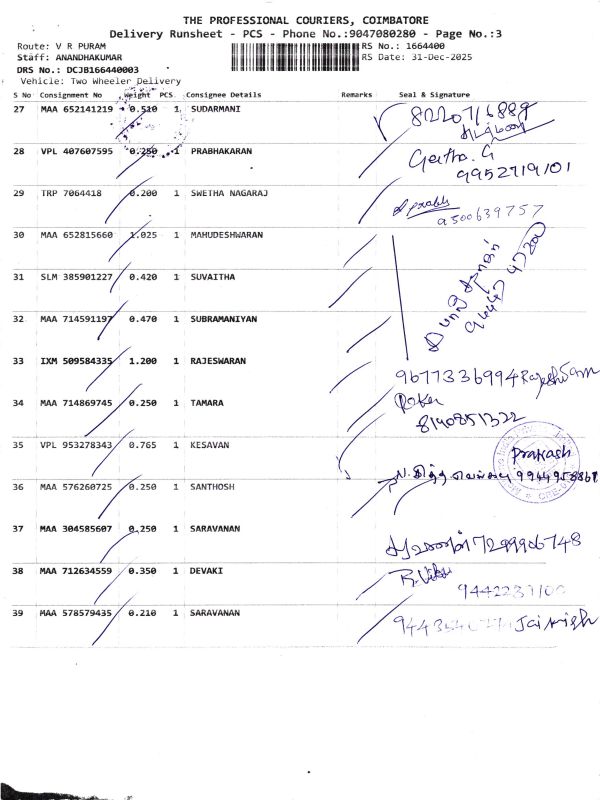 THE PROFESSIONAL COURIERS, COIMBATORE
Delivery Runsheet - PCS - Phone No.:9047080280 - Page No.:3
Route: V R PURAM
RS No.: 1664400
Staff: ANANDHAKUMAR
RS Date: 31-Dec-2025
DRS No.: DCJB166440003
Vehicle: Two Wheeler Delivery
S No Consignment No Weight PCS. Consignee Details Remarks Seal & Signature
27 MAA 652141219 0.510 1 SUDARMANI
28 VPL 407607595 0.250 1 PRABHAKARAN Geetha. G
9952719101
29 TRP 7064418 0.200 1 SWETHA NAGARAJ
9500639757
30 MAA 652815660 1.025 1 MAHUDESHWARAN
31 SLM 385901227 0.420 1 SUVAITHA
32 MAA 714591197 0.470 1 SUBRAMANIYAN
33 IXM 509584335 1.200 1 RAJESWARAN 9677336994
34 MAA 714869745 0.250 1 TAMARA
8140851322
35 VPL 953278343 0.765 1 KESAVAN Prakash
36 MAA 576260725 0.250 1 SANTHOSH 9944958867
37 MAA 304585607 0.250 1 SARAVANAN 7299906748
38 MAA 712634559 0.350 1 DEVAKI
39 MAA 578579435 0.210 1 SARAVANAN